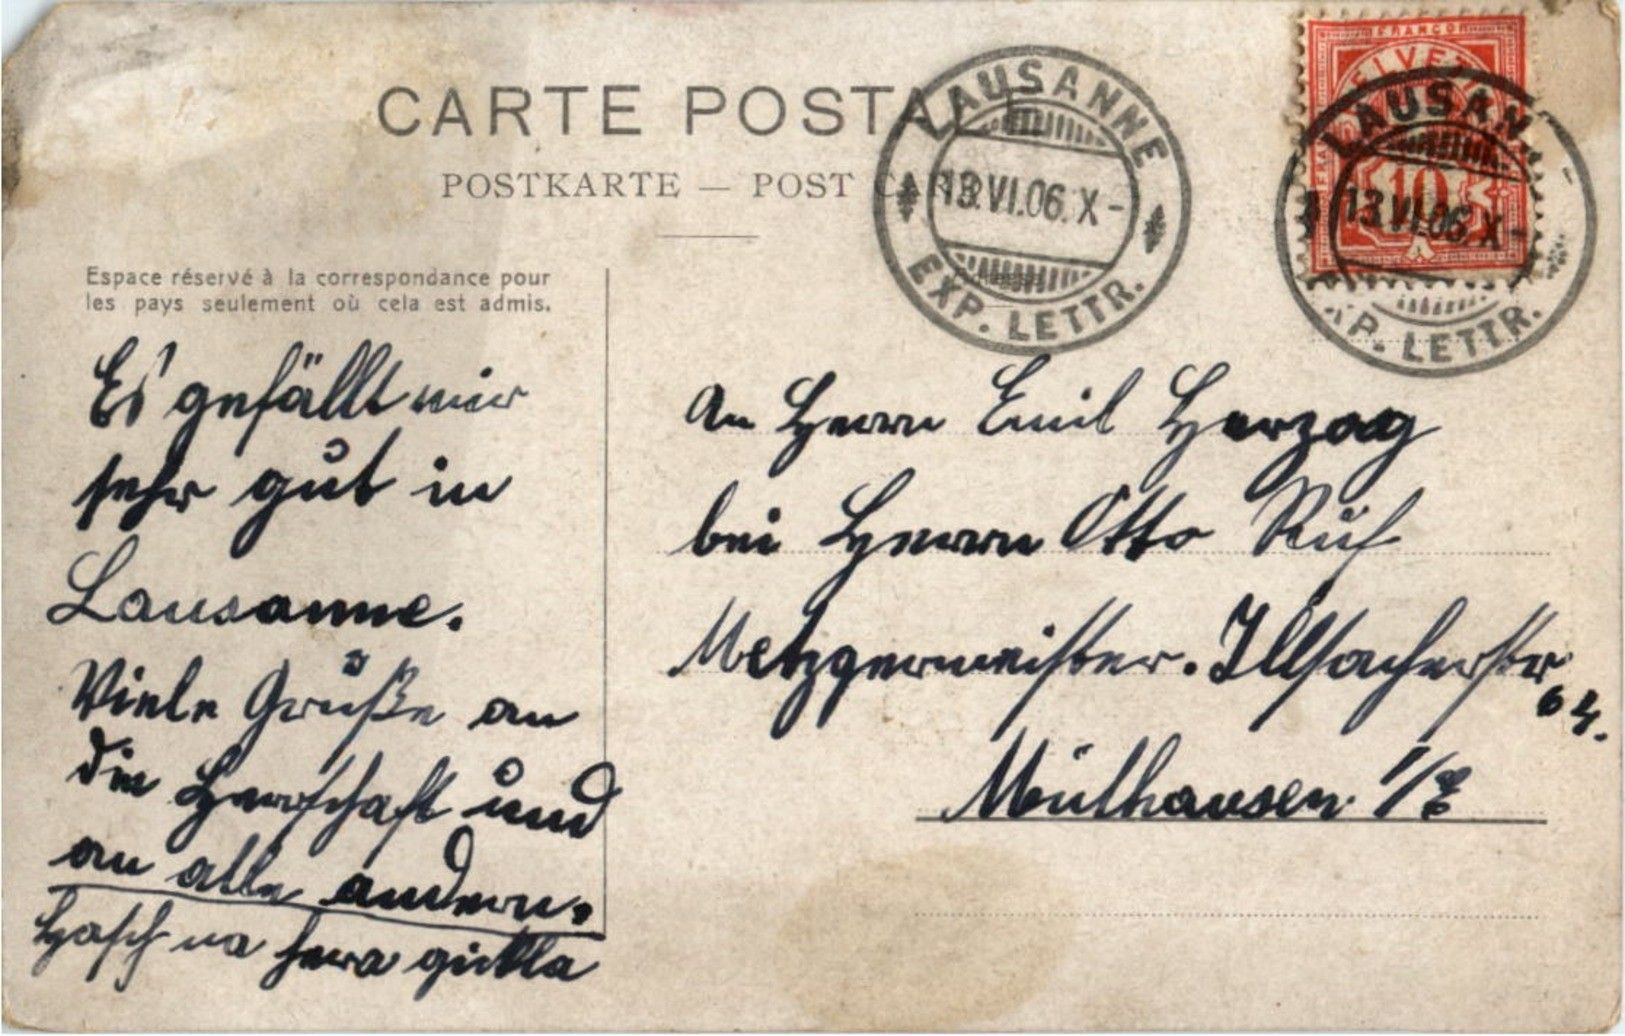 CARTE POSTALE
POSTKARTE — POST CARD
LAUSANNE
13.VI.06.X-
EXP. LETTR.
FRANCO
HELVETIA
10
LAUSANNE
13.VI.06.X-
EXP. LETTR.
Espace réservé à la correspondance pour
les pays seulement où cela est admis.
Es gefällt mir
sehr gut in
Lausanne.
Viele Grüße an
die Herrschaft und
an alle andern.
An Herrn Emil Herzog
bei Herrn Otto Ruf
Metzgermeister. Illsacherstr
64.
Mülhausen i/E